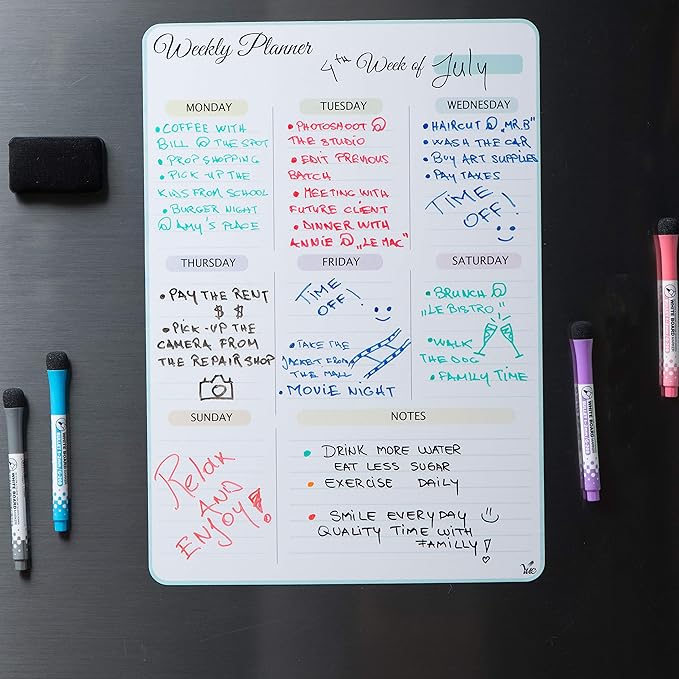 Weekly Planner
4th Week of July
MONDAY
• COFFEE WITH
BILL @ THE SPOT
• PROP SHOPPING
• PICK UP THE
KIDS FROM SCHOOL
• BURGER NIGHT
@ AMY'S PLACE
TUESDAY
• PHOTOSHOOT @
THE STUDIO
• EDIT PREVIOUS
BATCH
• MEETING WITH
FUTURE CLIENT
• DINNER WITH
ANNIE @ „LE MAC"
WEDNESDAY
• HAIRCUT @ „MR.B"
• WASH THE CAR
• BUY ART SUPPLIES
• PAY TAXES
TIME
OFF!
THURSDAY
• PAY THE RENT
$ $
• PICK-UP THE
CAMERA FROM
THE REPAIR SHOP
FRIDAY
TIME
OFF!
• TAKE THE
JACKET FROM
THE MALL
• MOVIE NIGHT
SATURDAY
• BRUNCH @
„LE BISTRO"
• WALK
THE DOG
• FAMILY TIME
SUNDAY
Relax
AND
ENJOY!
NOTES
• DRINK MORE WATER
EAT LESS SUGAR
• EXERCISE DAILY
• SMILE EVERYDAY
QUALITY TIME WITH
FAMILLY!
WHITE BOARD
WHITE BOARD
WHITE BOARD
WHITE BOARD